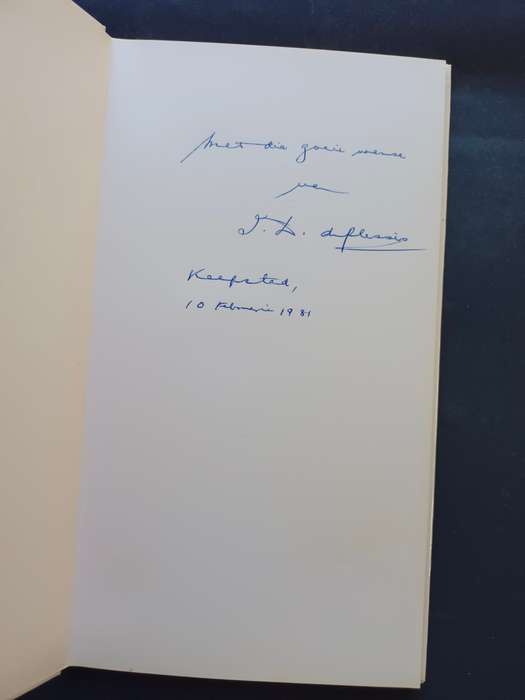 Met die goeie wense
van
I. D. du Plessis
Kaapstad,
10 Februarie 1981